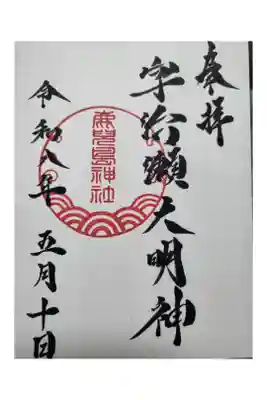 奉拝
宇治瀬大明神
鹿児島神社
令和八年 五月十日